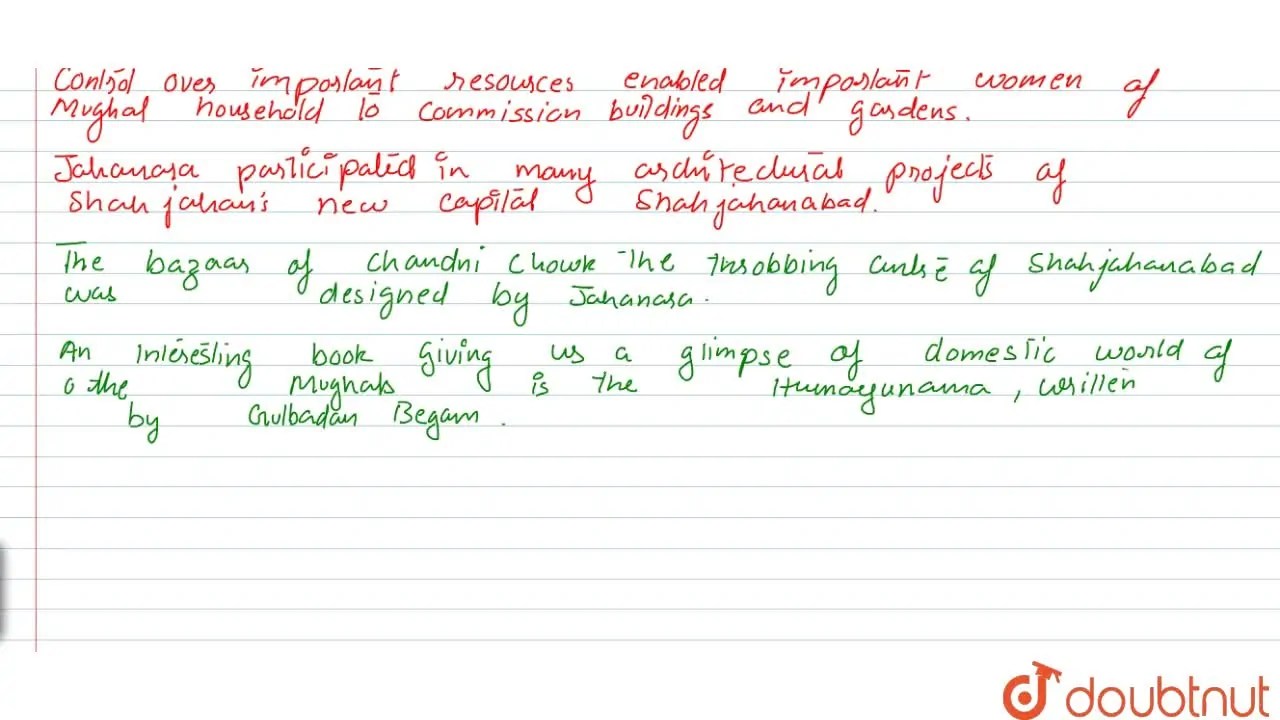 Control over important resources enabled important women of
Mughal household to commission buildings and gardens.
Jahanara participated in many architectural projects of
Shah jahan's new capital Shahjahanabad.
The bazaar of Chandni Chowk the throbbing centre of Shahjahanabad
was designed by Jahanara.
An interesting book giving us a glimpse of domestic world of
the Mughals is the Humayunama, written
by Gulbadan Begam.
doubtnut